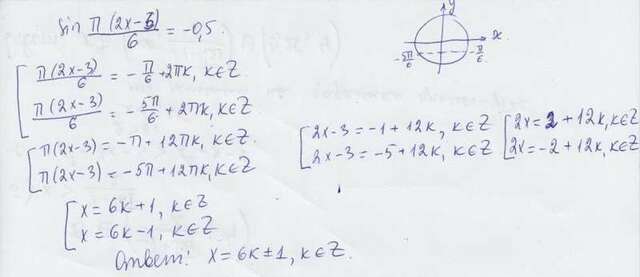 sin π(2x-3)/6 = -0,5.
y
x
-5π/6
-π/6
[ π(2x-3)/6 = -π/6 + 2πk, k∈Z
π(2x-3)/6 = -5π/6 + 2πk, k∈Z.
[ π(2x-3) = -π + 12πk, k∈Z
π(2x-3) = -5π + 12πk, k∈Z
[ 2x-3 = -1 + 12k, k∈Z
2x-3 = -5 + 12k, k∈Z
[ 2x = 2 + 12k, k∈Z
2x = -2 + 12k, k∈Z
[ x = 6k + 1, k∈Z
x = 6k - 1, k∈Z
Ответ: x = 6k ± 1, k∈Z.